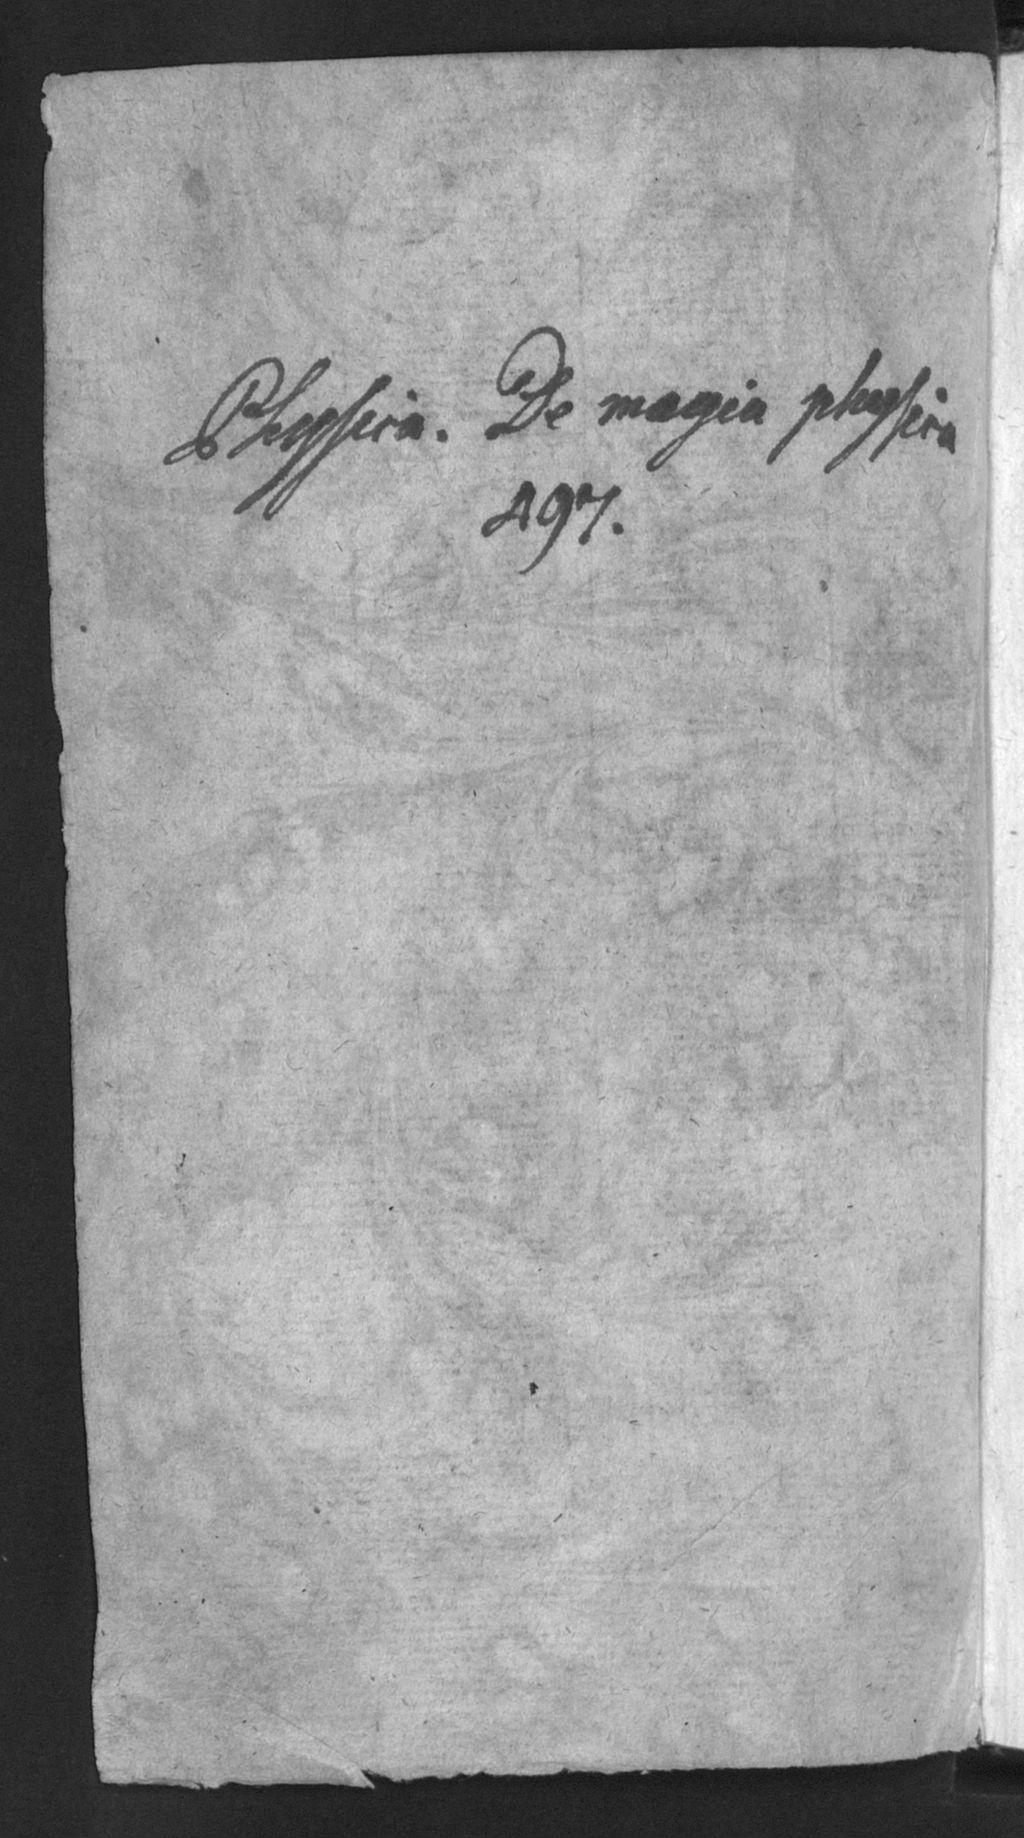 Physica. De magia physica
497.